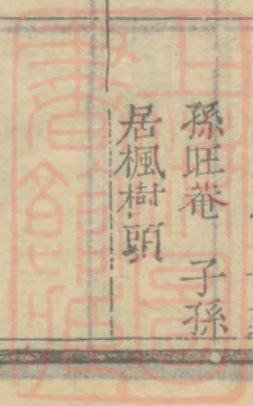 孫旺菴 子孫
居楓樹頭